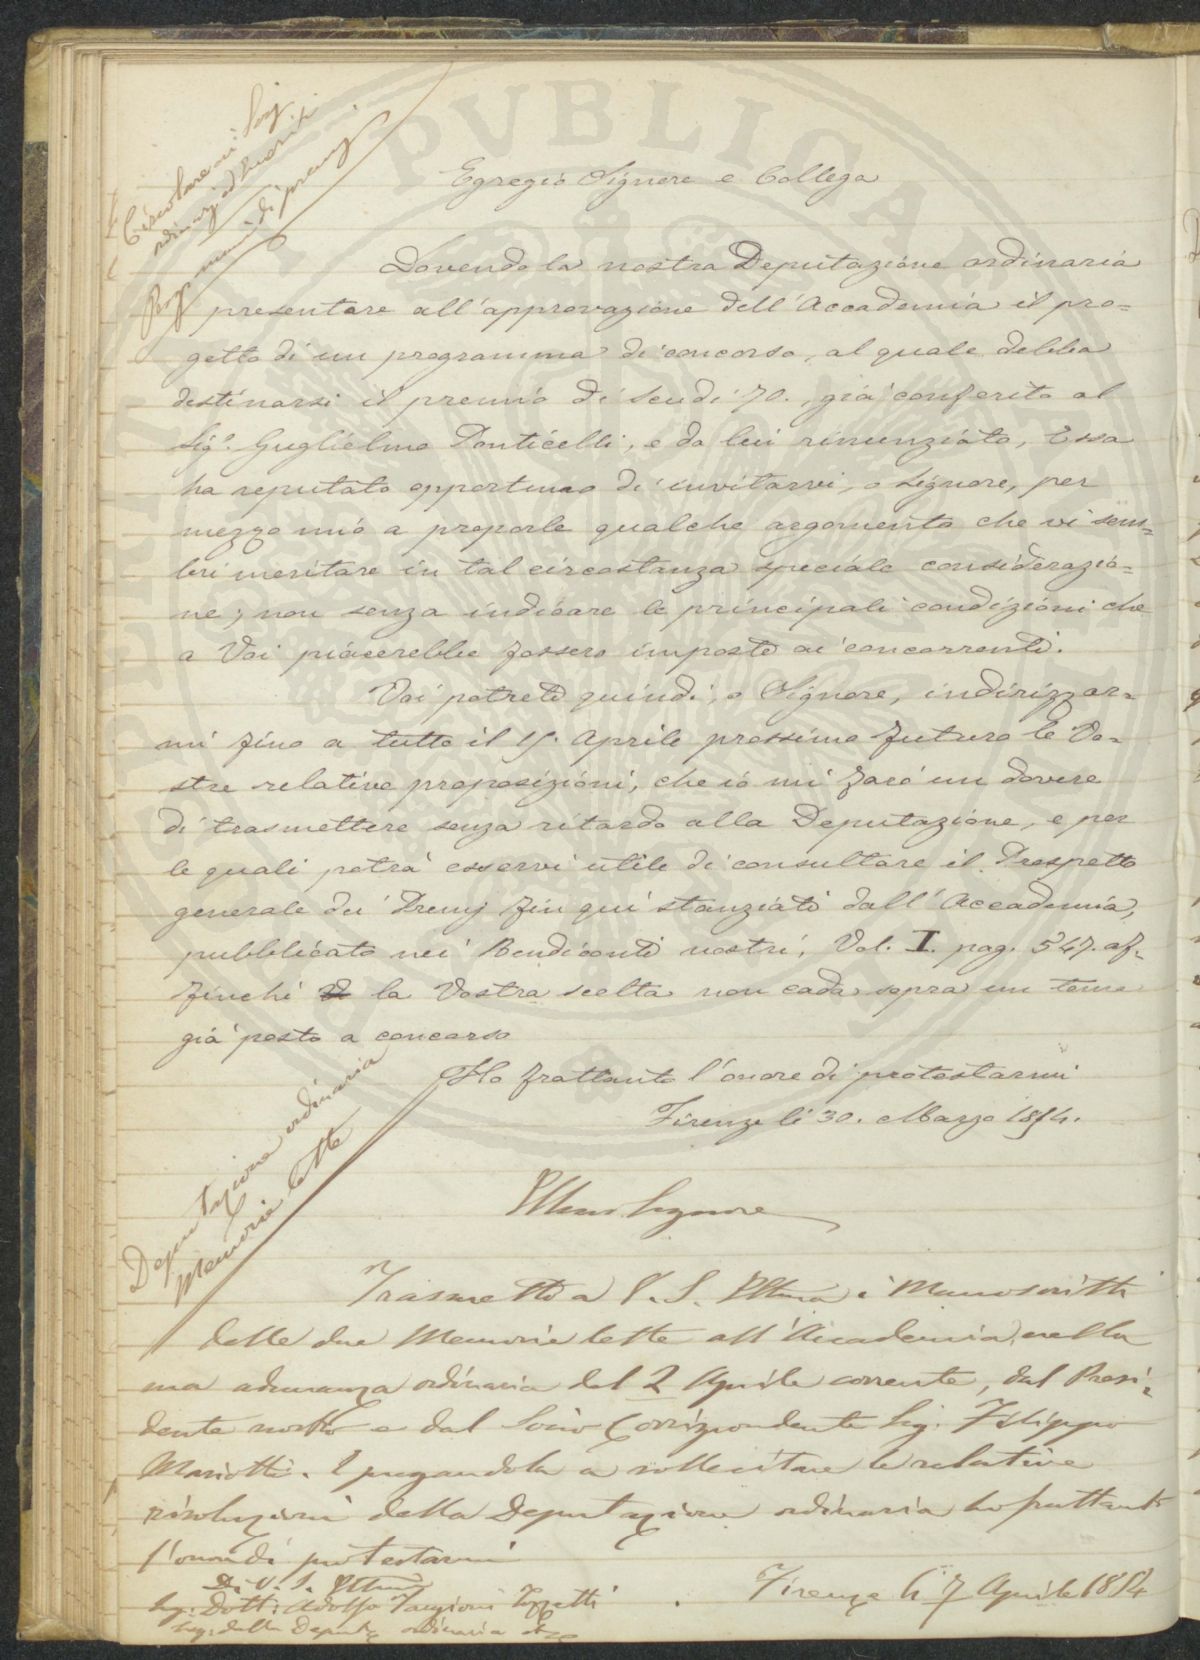 Circolare ai Sigg.
ordinarj ed onorarj
Per nuovi di premj
Egregio Signore e Collega
Dovendo la nostra Deputazione ordinaria
presentare all'approvazione dell'Accademia il pro=
getto di un programma di concorso, al quale debba
destinarsi il premio di Scudi 70., già conferito al
Sig.r Guglielmo Ponticelli, e da lui rinunziato, Essa
ha reputato opportuno di invitarvi, o Signore, per
mezzo mio a proporle qualche argomento che vi sem=
bri meritare in tal circostanza speciale considerazio=
ne; non senza indicare le principali condizioni che
a Voi piacerebbe fossero imposte ai concorrenti.
Voi potrete quindi, o Signore, indirizzar=
mi fino a tutto il 15. Aprile prossimo futuro le Vo=
stre relative proposizioni, che io mi farò un dovere
di trasmettere senza ritardo alla Deputazione, e per
le quali potrà esservi utile di consultare il Prospetto
generale dei Premj fin qui stanziati dall'Accademia,
pubblicato nei Rendiconti nostri, Vol. I. pag. 547. af=
finchè la Vostra scelta non cada sopra un tema
già posto a concorso
Ho frattanto l'onore di protestarmi
Firenze li 30. Marzo 1854.
Deputazione ordinaria
Memorie lette
Illmo Signore
Trasmetto a V. S. Illma i Manoscritti
delle due Memorie lette all'Accademia nella
sua adunanza ordinaria del 2 Aprile corrente, dal Presi=
dente nostro e dal Socio Corrispondente Sig. Filippo
Mariotti. E pregandola a sollecitare le relative
risoluzioni della Deputazione ordinaria ho frattanto
l'onore di protestarmi
Di V. S. Illma
Sig. Dott. Adolfo Targioni Tozzetti
Seg. della Deputaz. ordinaria
Firenze li 7 Aprile 1854
PVBLICA